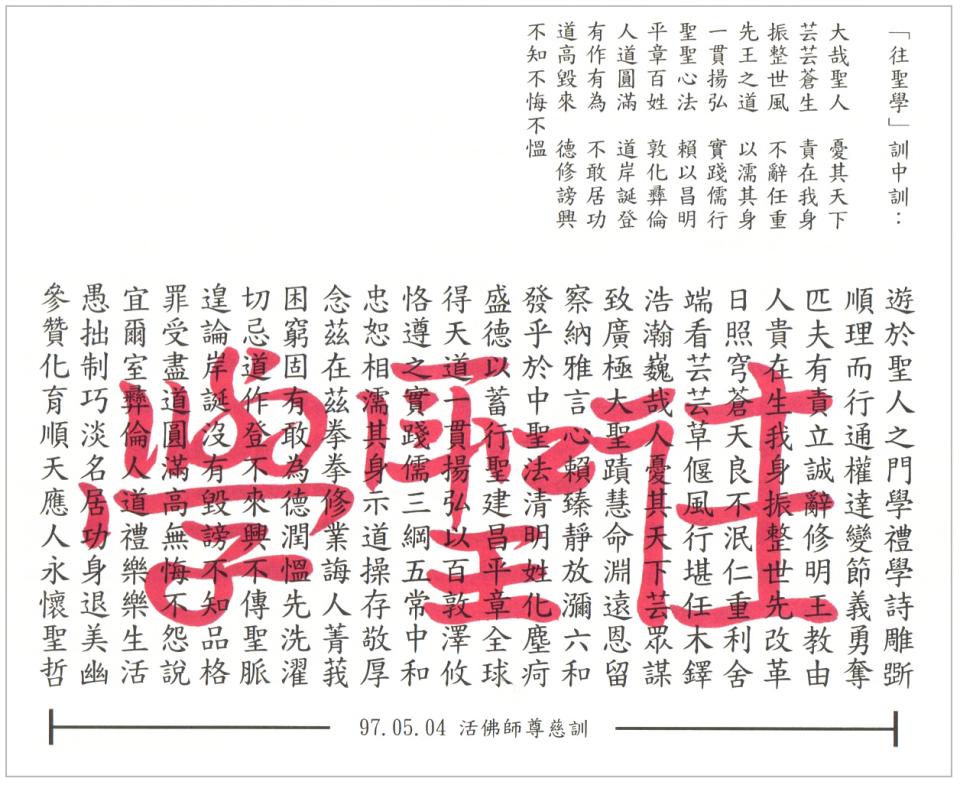 「往聖學」訓中訓：
大哉聖人　憂其天下
芸芸蒼生　責在我身
振整世風　不辭任重
先王之道　以濡其身
一貫揚弘　實踐儒行
聖聖心法　賴以昌明
平章百姓　敦化彝倫
人道圓滿　道岸誕登
有作有為　不敢居功
道高毀來　德修謗興
不知不悔不慍
遊於聖人之門學禮學詩雕斲
順理而行通權達變節義勇奪
匹夫有責立誠辭修明王教由
人貴在生我身振整世先改革
日照穹蒼天良不泯仁重利舍
端看芸芸草偃風行堪任木鐸
浩瀚巍哉人憂其天下芸眾謀
致廣極大聖蹟慧命淵遠恩留
察納雅言心賴臻靜放瀰六和
發乎於中聖法清明姓化塵疴
盛德以蓄行聖建昌平章全球
得天道一貫揚弘以百敦澤攸
恪遵之實踐儒三綱五常中和
忠恕相濡其身示道操存敬厚
念茲在茲拳拳修業誨人菁莪
困窮固有敢為德潤慍先洗濯
切忌道作登不來興不傳聖脈
遑論岸誕沒有毀謗不知品格
罪受盡道圓滿高無悔不怨說
宜爾室彝倫人道禮樂樂生活
愚拙制巧淡名居功身退美幽
參贊化育順天應人永懷聖哲
往聖學
97.05.04 活佛師尊慈訓